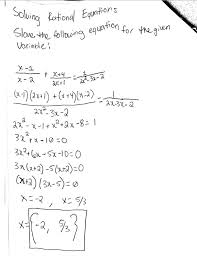 Solving Rational Equations
Slove the following equation for the given
Variable:
x-1/x-2 + x+4/2x+1 = 1/2x²-3x-2
(x-1)(2x+1)+(x+4)(x-2)/2x²-3x-2 = 1/2x-3x-2
2x²-x-1+x²+2x-8=1
3x²+x-10=0
3x²+6x-5x-10=0
3x(x+2)-5(x+2)=0
(x+2)(3x-5)=0
x=-2, x=5/3
x={-2, 5/3}